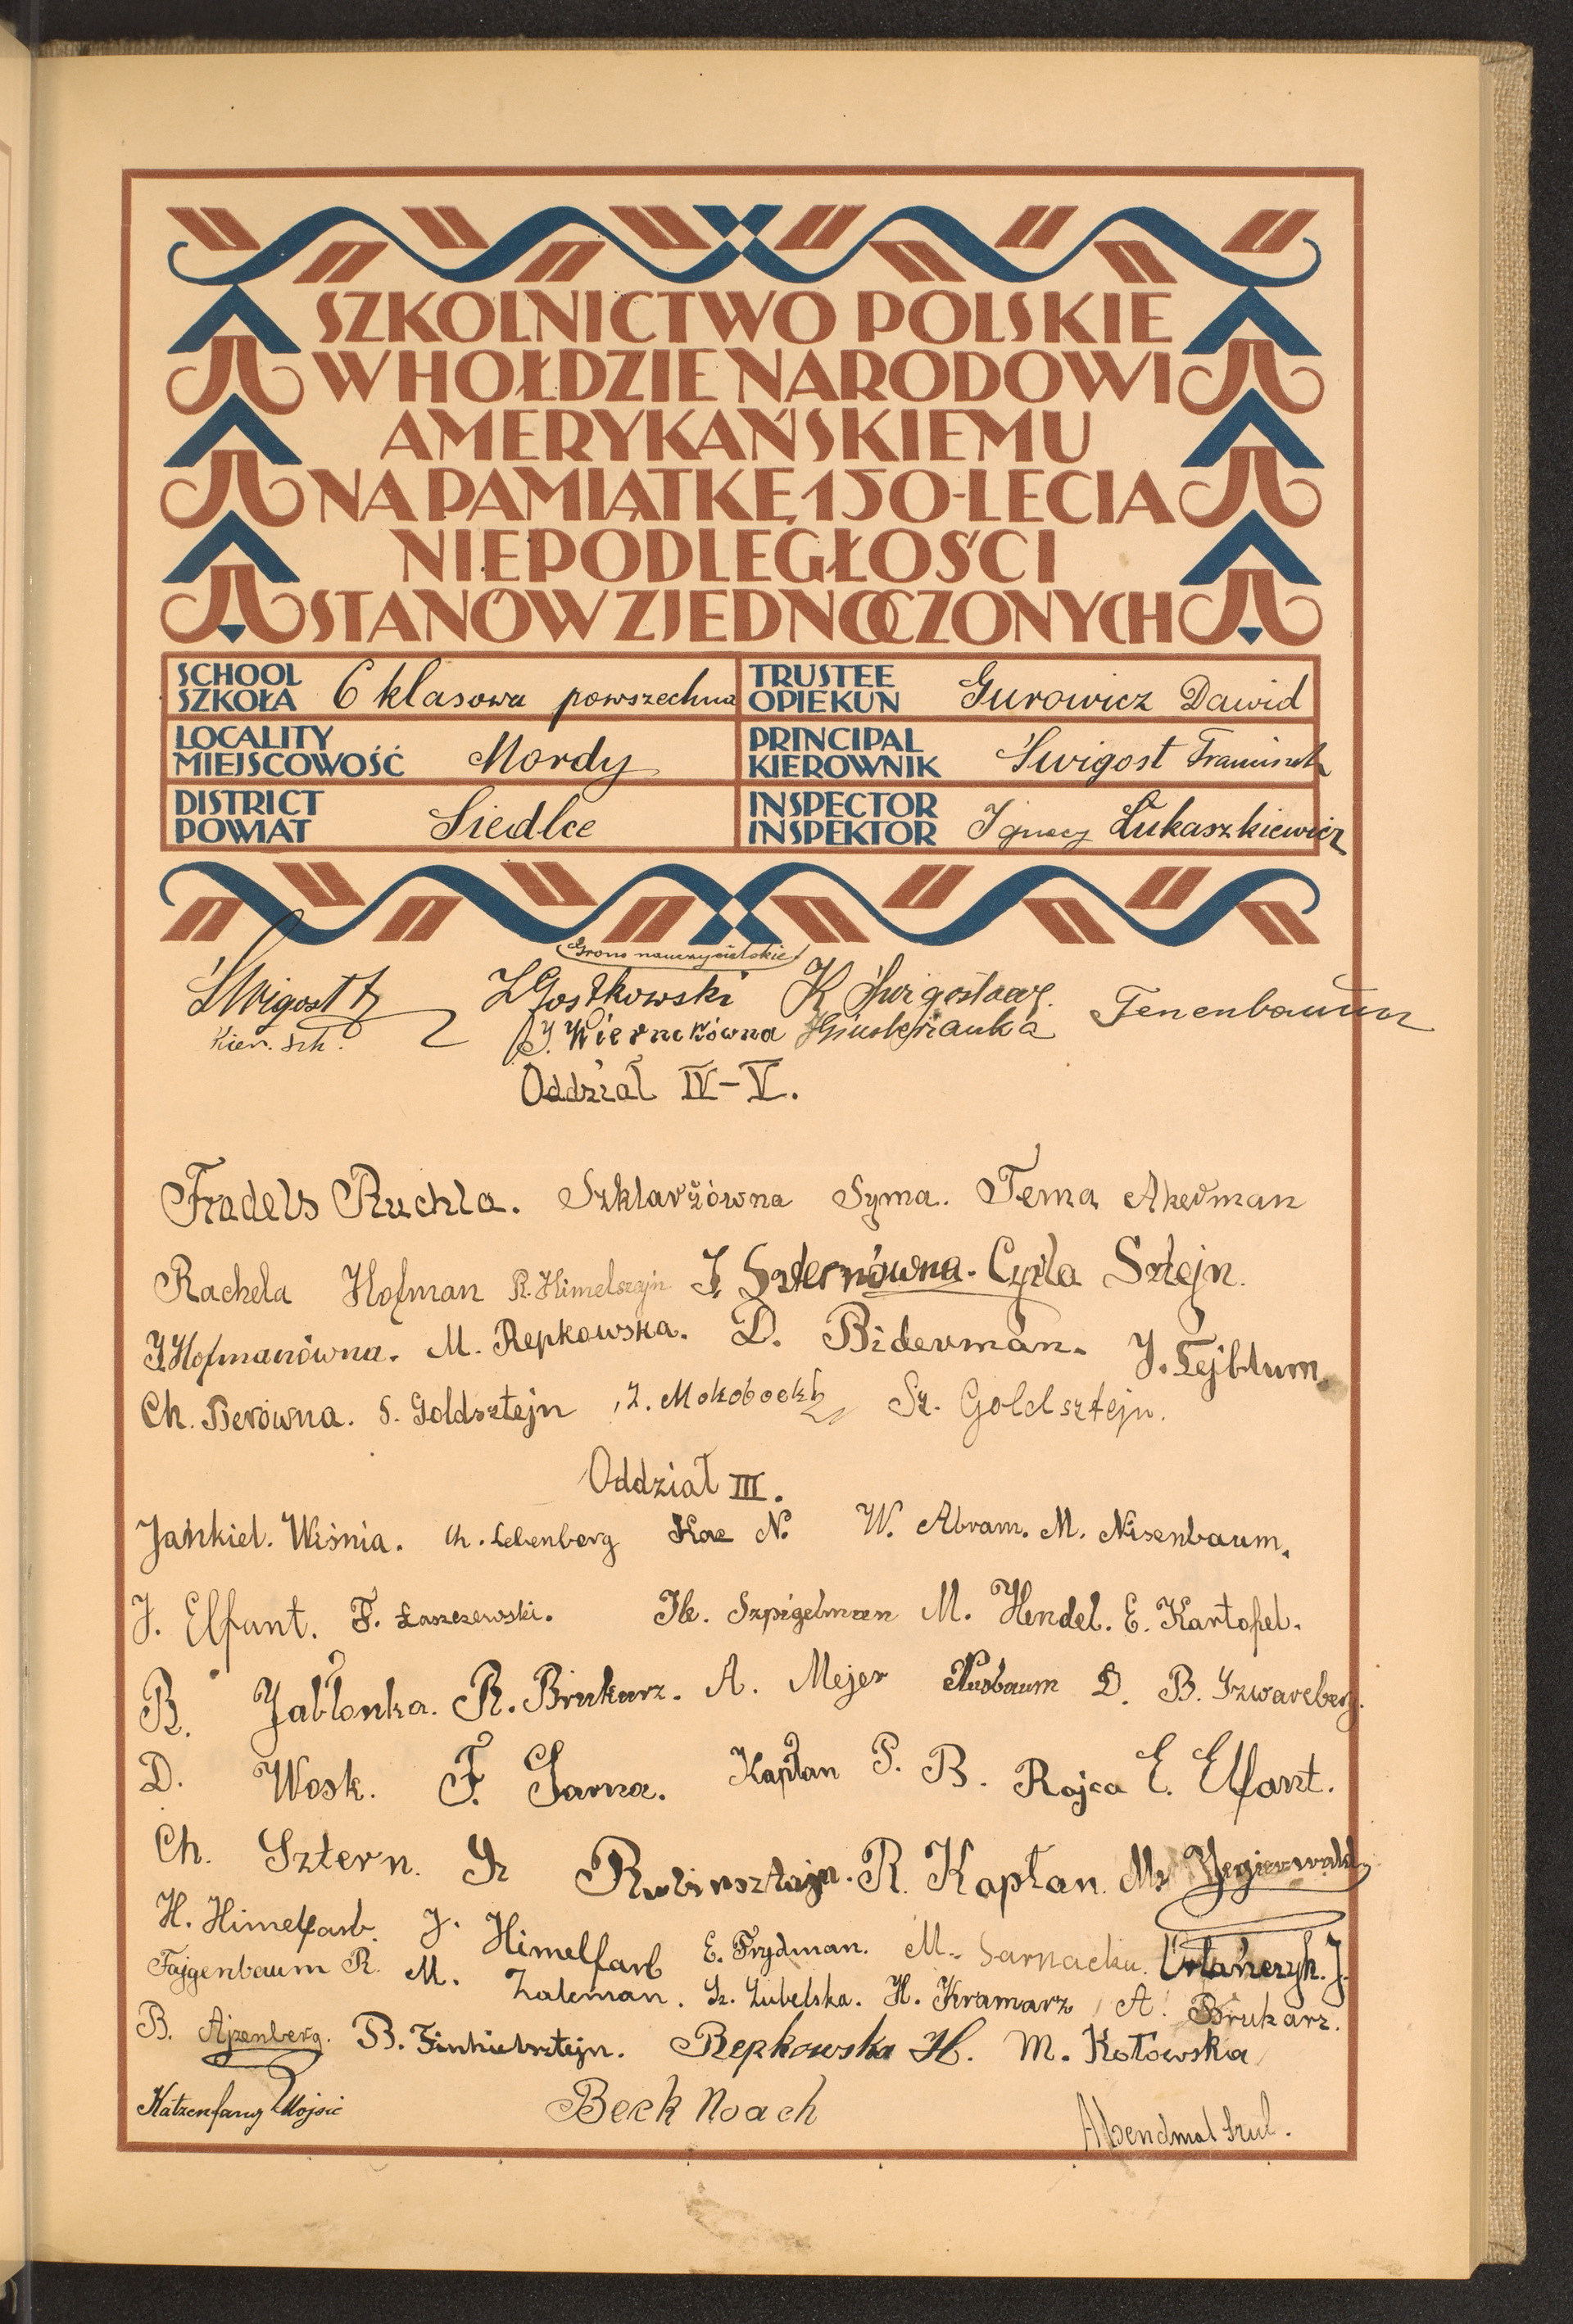 SZKOLNICTWO POLSKIE
W HOŁDZIE NARODOWI
AMERYKAŃSKIEMU
NA PAMIĄTKĘ 150-LECIA
NIEPODLEGŁOŚCI
STANÓW ZJEDNOCZONYCH
SCHOOL
SZKOŁA 6 klasowa powszechna
TRUSTEE
OPIEKUN Gurowicz Dawid
LOCALITY
MIEJSCOWOŚĆ Mordy
PRINCIPAL
KIEROWNIK Świgost Franciszek
DISTRICT
POWIAT Siedlce
INSPECTOR
INSPEKTOR Ignacy Łukaszkiewicz
Grono nauczycielskie
Świgost F. Z Gostkowski K Świgostowa. Tenenbaum
Kier. Szk. J. Wiernikówna
Oddział IV-V.
Fradels Ruchla. Szklarzówna Syma. Tema Akerman
Rachela Hofman R. Himelszejn J. Szternówna. Cyrla Sztejn.
J. Hofmanówna. M. Repkowska. D. Biderman. J. Lejblum.
Ch. Berówna. S. Goldsztejn Z. Mokobocki Sz. Goldsztejn.
Oddział III.
Jankiel. Wiśnia. Ch. Lebenberg N. W. Abram. M. Nisenbaum.
J. Elfant. F. Łaszczewski. Szpigelman M. Hendel. E. Kartofel.
B. Jabłonka. R. Brukarz. A. Mejer Nusbaum D. B. Szwarcberg.
D. Wosk. F. Sarna. Kapłan P. B. Rojca E. Elfant.
Ch. Sztern. Sz Rubinsztajn. R. Kapłan. M.
H. Himelfarb. J. Himelfarb E. Frydman. M. Sarnacka. Urlańczyk. J.
Fajgenbaum R. M. Zalcman. Sz. Lubelska. H. Kramarz A. Brukarz.
B. Ajzenberg. B. Finkielsztejn. Repkowska H. M. Kotowska
Katzenfang Mojsie Beck Noach Abendmal Szul.